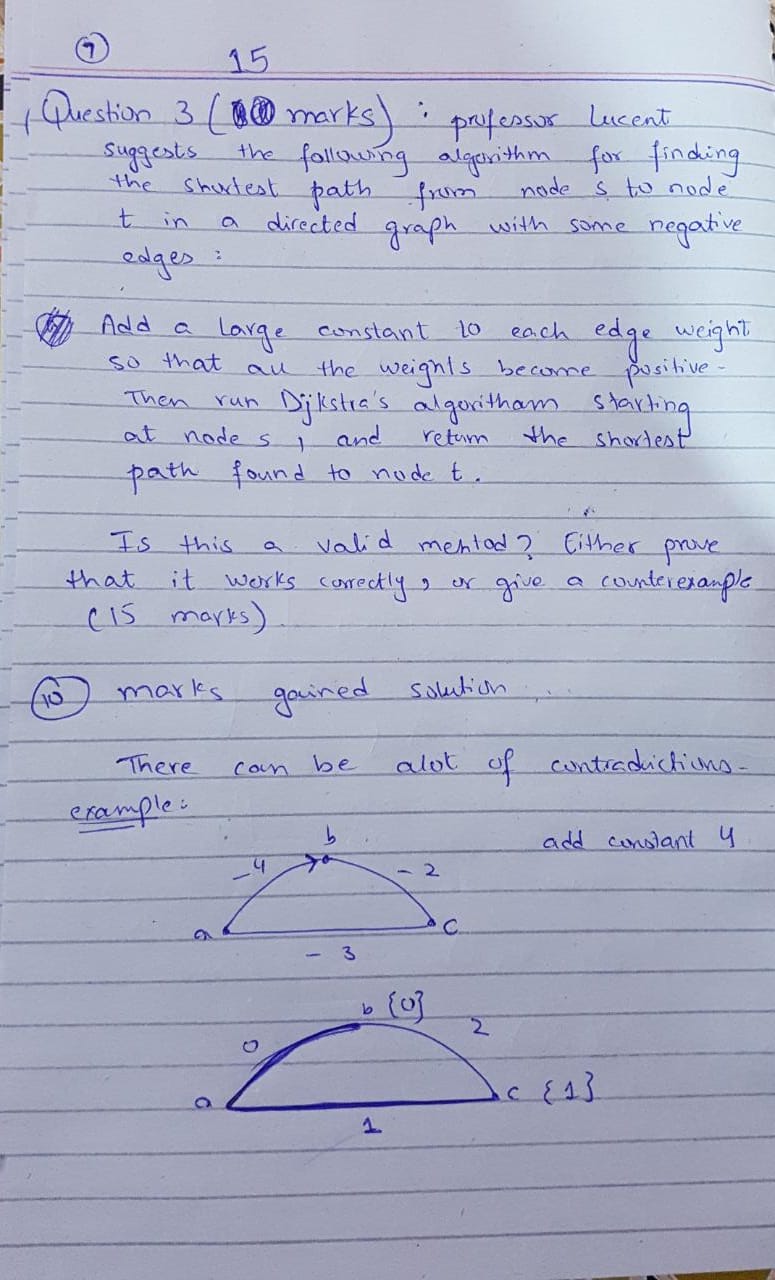 7
15
Question 3 ( marks) : professor lucent
suggests the following algorithm for finding
the shortest path from node s to node
t in a directed graph with some negative
edges :
Add a large constant to each edge weight
so that all the weights become positive -
Then run Dijkstra's algoritham starting
at node s , and return the shortest
path found to node t .
Is this a valid mehtod ? Either prove
that it works correctly , or give a counterexample
(15 marks)
10 marks gained solution ...
There can be alot of contradictions -
example :
b
add constant 4
-4
- 2
a
c
- 3
b {0}
2
0
a
c {1}
1